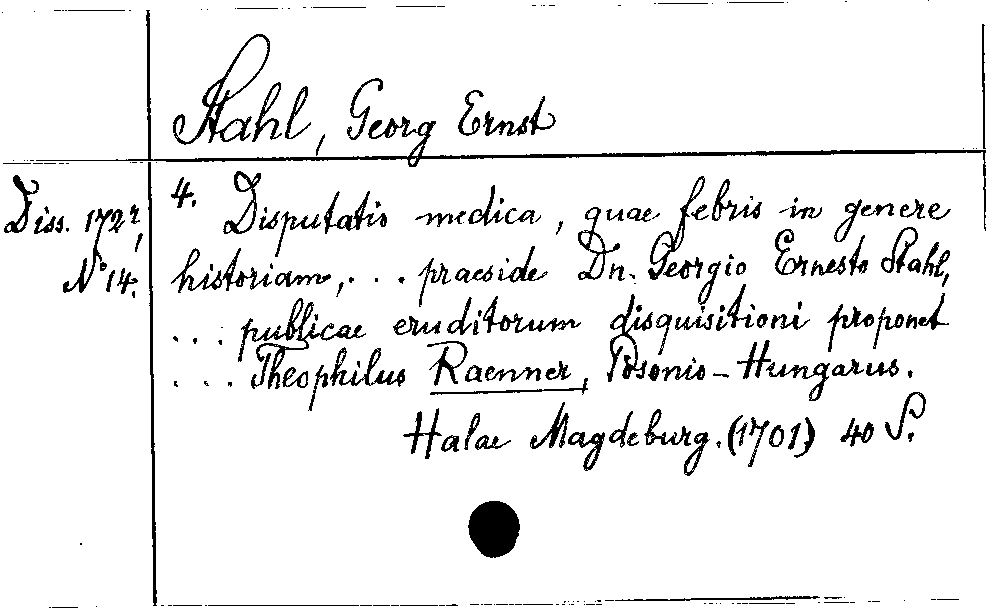 Stahl, Georg Ernst
Diss. 1722,
N° 14.
4. Disputatio medica, quae febris in genere
historiam, ... praeside Dn. Georgio Ernesto Stahl,
... publicae eruditorum disquisitioni proponet
.... Theophilus Raenner, Posonio-Hungarus.
Halae Magdeburg. (1701) 40 S.